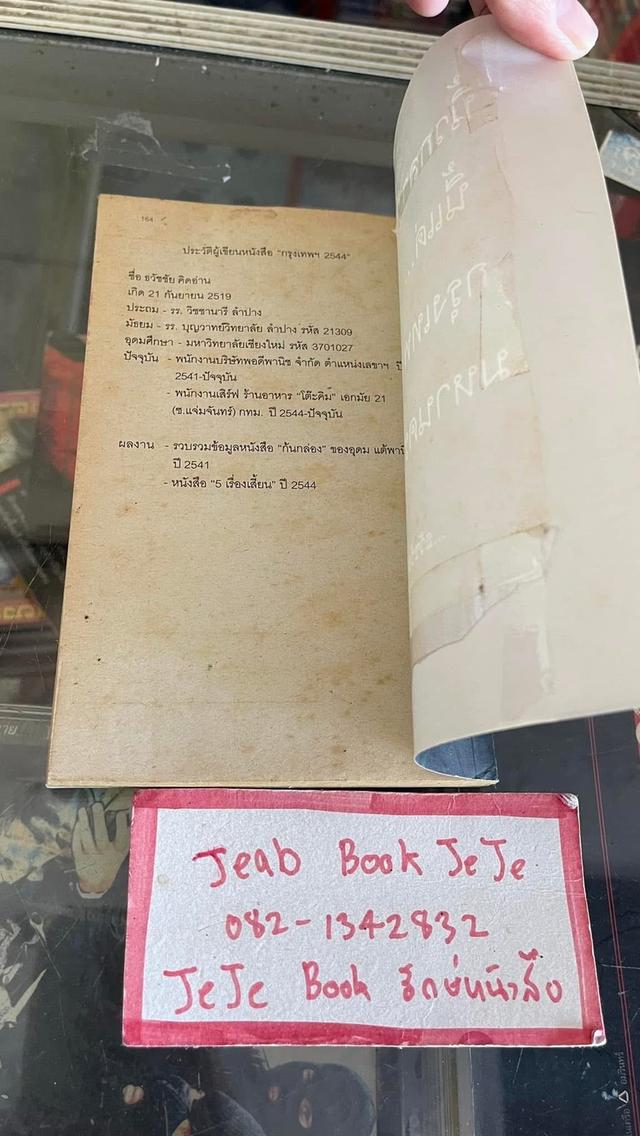 164
ประวัติผู้เขียนหนังสือ "กรุงเทพฯ 2544"
ชื่อ ธวัชชัย คิดอ่าน
เกิด 21 กันยายน 2519
ประถม - รร. วิชชานารี ลำปาง
มัธยม - รร. บุญวาทย์วิทยาลัย ลำปาง รหัส 21309
อุดมศึกษา - มหาวิทยาลัยเชียงใหม่ รหัส 3701027
ปัจจุบัน - พนักงานบริษัทพอดีพานิช จำกัด ตำแหน่งเลขาฯ ปี
2541-ปัจจุบัน
- พนักงานเสิร์ฟ ร้านอาหาร "โต๊ะคิม" เอกมัย 21
(ซ.แจ่มจันทร์) กทม. ปี 2544-ปัจจุบัน
ผลงาน - รวบรวมข้อมูลหนังสือ "ก้นกล่อง" ของอุดม แต้พานิ
ปี 2541
- หนังสือ "5 เรื่องเสี้ยน" ปี 2544
Jeab Book JeJe
082-1342832
JeJe Book รักษ์หนังสือ
อมรินทร์